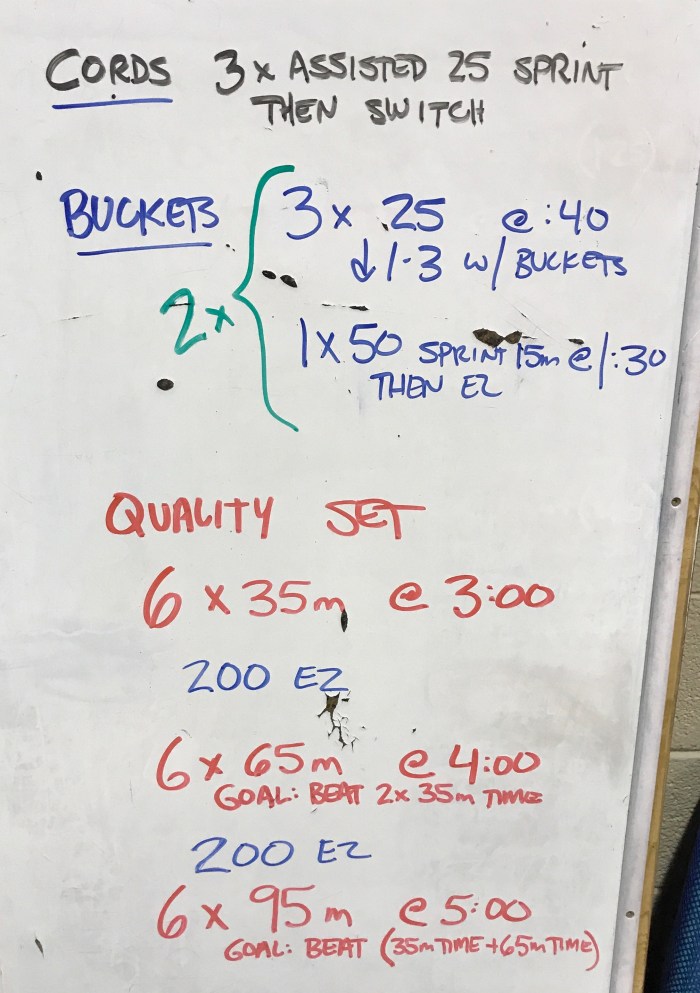 CORDS 3x ASSISTED 25 SPRINT
THEN SWITCH
BUCKETS 3x 25 @:40
↓1-3 w/ BUCKETS
2x
1x50 SPRINT 15m @1:30
THEN EZ
QUALITY SET
6 x 35m @ 3:00
200 EZ
6x 65m @ 4:00
GOAL: BEAT 2x 35m TIME
200 EZ
6x 95m @ 5:00
GOAL: BEAT (35m TIME + 65m TIME)